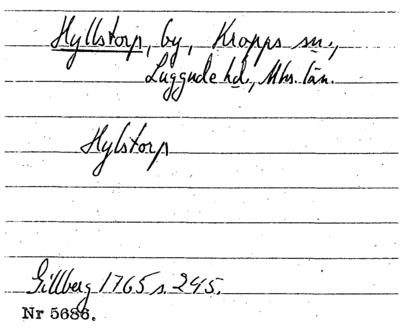 Hyllstorp, by, Kropps sn.,
Luggude hd., Mhs. län.
Hylstorp
Gillberg 1765 s. 245.
Nr 5686.